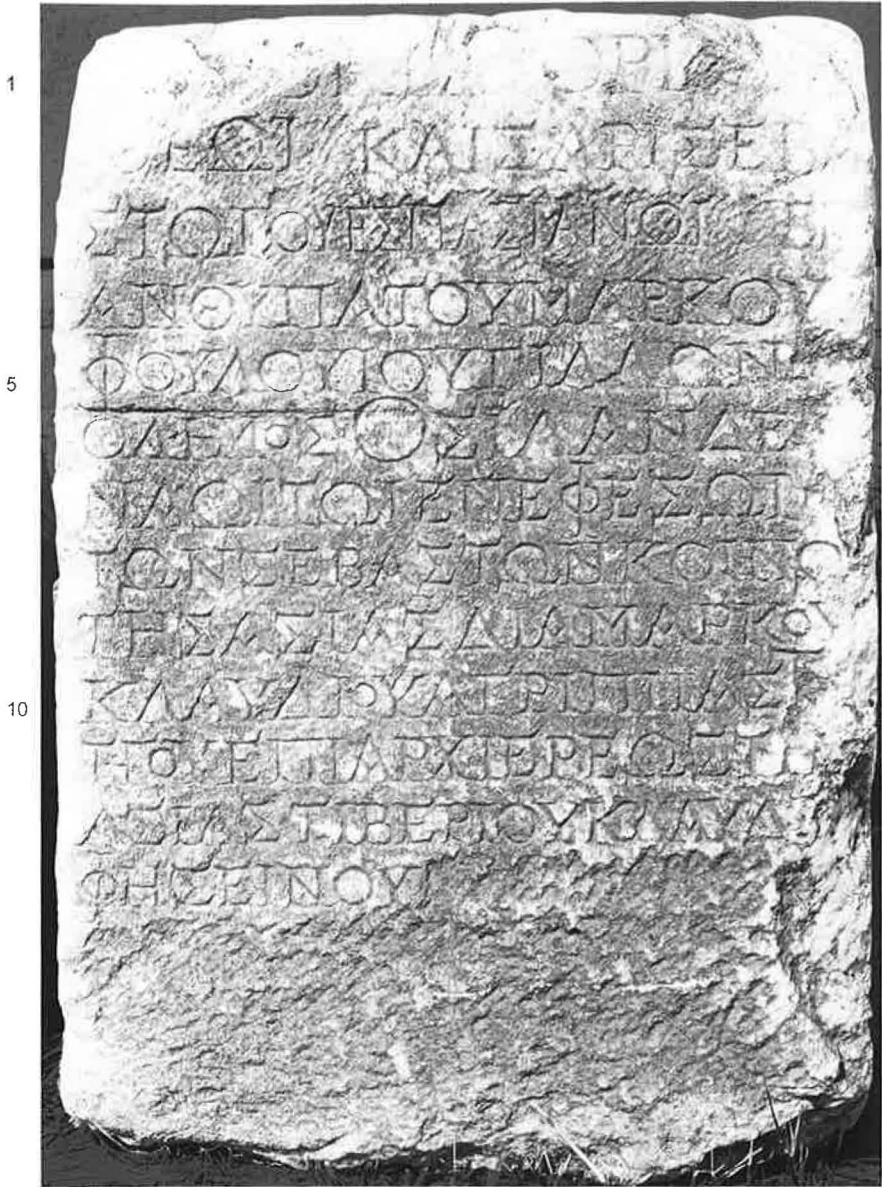 1 ΟΡΙ
ΘΕΩΙ ΚΑΙΣΑΡΙ ΣΕΒ
ΣΤΩΙ ΟΥΕΣΠΑΣΙΑΝΩΙ ΕΠ
ΑΝΘΥΠΑΤΟΥ ΜΑΡΚΟΥ
5 ΦΟΥΛΟΥΙΟΥ ΓΙΛΛΩΝ
ΟΔΗΜΟΣ Ο ΣΙΛΑΝΔΕ
ΝΑΩΙ ΤΩΙ ΕΝ ΕΦΕΣΩΙ
ΤΩΝ ΣΕΒΑΣΤΩΝ ΚΟΙΝΩ
ΤΗΣ ΑΣΙΑΣ ΔΙΑ ΜΑΡΚΟΥ
10 ΚΛΑΥΔΙΟΥ ΑΓΡΙΠΠΑ
ΕΠΙ ΑΡΧΙΕΡΕΩΣ ΤΗ
ΑΣΙΑΣ ΤΙΒΕΡΙΟΥ ΚΛΑΥΔΙ
ΦΗΣΕΙΝΟΥ